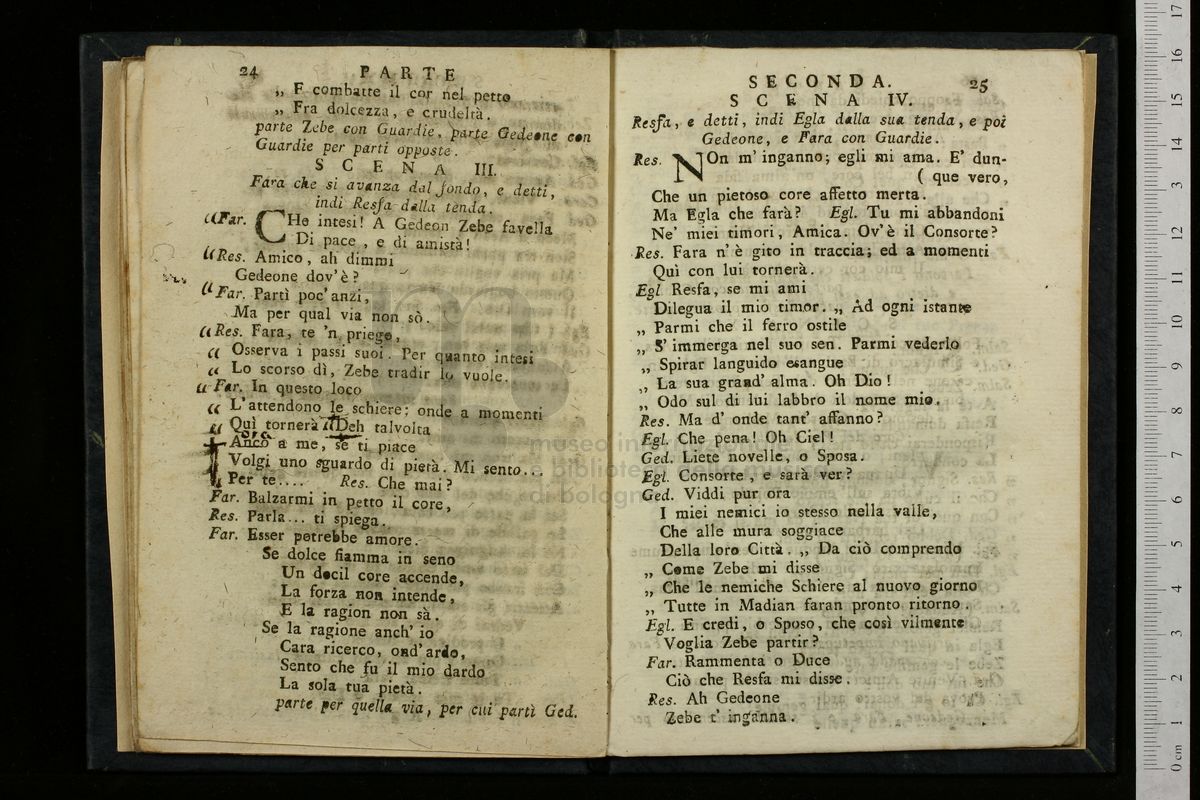 24 PARTE
„ E combatte il cor nel petto
„ Fra dolcezza, e crudeltà.
parte Zebe con Guardie, parte Gedeone con
Guardie per parti opposte.
SCENA III.
Fara che si avanza dal fondo, e detti,
indi Resfa dalla tenda.
“Far. CHe intesi! A Gedeon Zebe favella
Di pace, e di amistà!
“Res. Amico, ah dimmi
Gedeone dov'è?
“Far. Partì poc'anzi,
Ma per qual via non sò.
“Res. Fara, te 'n priego,
“ Osserva i passi suoi. Per quanto intesi
“ Lo scorso dì, Zebe tradir lo vuole.
“Far. In questo loco
“ L'attendono le schiere; onde a momenti
“ Quì tornerà “Deh talvolta
Ancò a me, se ti piace
Volgi uno sguardo di pietà. Mi sento...
“ Per te.... Res. Che mai?
Far. Balzarmi in petto il core,
Res. Parla... ti spiega.
Far. Esser potrebbe amore.
Se dolce fiamma in seno
Un docil core accende,
La forza non intende,
E la ragion non sà.
Se la ragione anch' io
Cara ricerco, ond'ardo,
Sento che fu il mio dardo
La sola tua pietà.
parte per quella via, per cui partì Ged.
SECONDA. 25
SCENA IV.
Resfa, e detti, indi Egla dalla sua tenda, e poi
Gedeone, e Fara con Guardie.
Res. NOn m'inganno; egli mi ama. E' dun-
( que vero,
Che un pietoso core affetto merta.
Ma Egla che farà? Egl. Tu mi abbandoni
Ne' miei timori, Amica. Ov'è il Consorte?
Res. Fara n'è gito in traccia; ed a momenti
Quì con lui tornerà.
Egl Resfa, se mi ami
Dilegua il mio timor. „ Ad ogni istante
„ Parmi che il ferro ostile
„ S'immerga nel suo sen. Parmi vederlo
„ Spirar languido esangue
„ La sua grand' alma. Oh Dio!
„ Odo sul di lui labbro il nome mio.
Res. Ma d' onde tant' affanno?
Egl. Che pena! Oh Ciel!
Ged. Liete novelle, o Sposa.
Egl. Consorte, e sarà ver?
Ged. Viddi pur ora
I miei nemici io stesso nella valle,
Che alle mura soggiace
Della loro Città. „ Da ciò comprendo
„ Come Zebe mi disse
„ Che le nemiche Schiere al nuovo giorno
„ Tutte in Madian faran pronto ritorno.
Egl. E credi, o Sposo, che così vilmente
Voglia Zebe partir?
Far. Rammenta o Duce
Ciò che Resfa mi disse.
Res. Ah Gedeone
Zebe t' inganna.